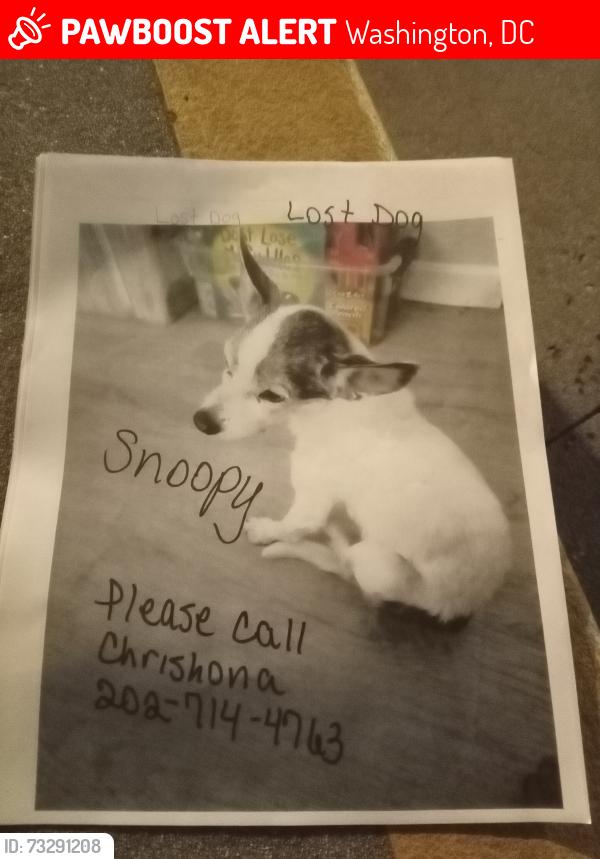 PAWBOOST ALERT Washington, DC
Lost Dog Lost Dog
Don't Lose
Snoopy
Please call
Chrishona
202-714-4763
ID: 73291208